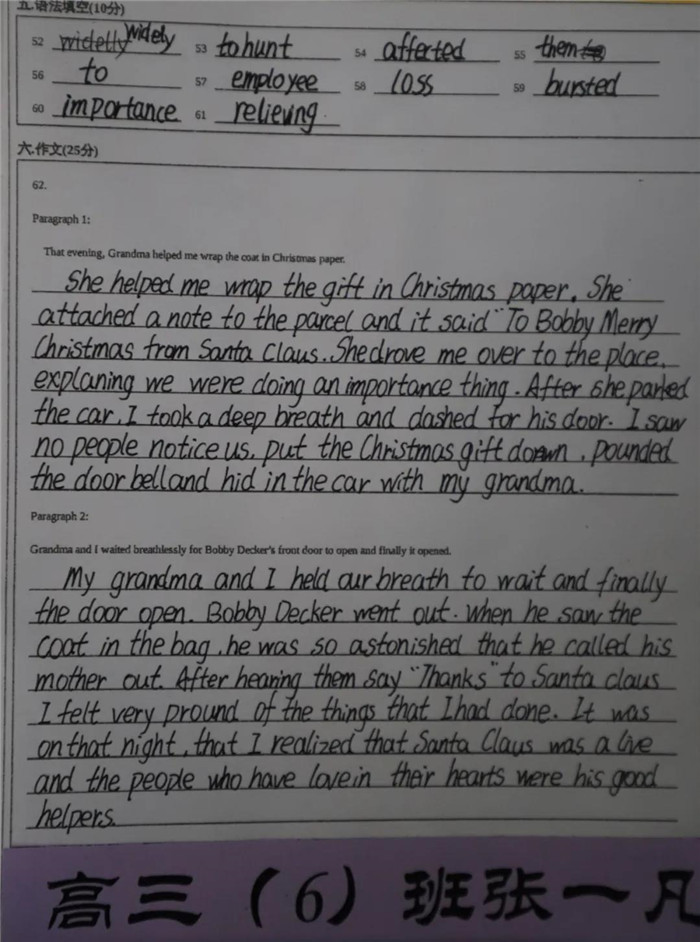 五.语法填空(10分)
52 widelly widely 53 to hunt 54 affected 55 them
56 to 57 employee 58 loss 59 bursted
60 importance 61 relieving.
六.作文(25分)
62.
Paragraph 1:
That evening, Grandma helped me wrap the coat in Christmas paper.
She helped me wrap the gift in Christmas paper. She
attached a note to the parcel and it said "To Bobby Merry
Christmas from Santa Claus. She drove me over to the place,
explaning we were doing an importance thing. After she parked
the car, I took a deep breath and dashed for his door. I saw
no people notice us, put the Christmas gift down, pounded
the door bell and hid in the car with my grandma.
Paragraph 2:
Grandma and I waited breathlessly for Bobby Decker's front door to open and finally it opened.
My grandma and I held our breath to wait and finally
the door open. Bobby Decker went out. When he saw the
coat in the bag, he was so astonished that he called his
mother out. After hearing them say "Thanks" to Santa claus
I felt very pround of the things that I had done. It was
on that night, that I realized that Santa Claus was a live
and the people who have love in their hearts were his good
helpers.
高三（6）班张一凡